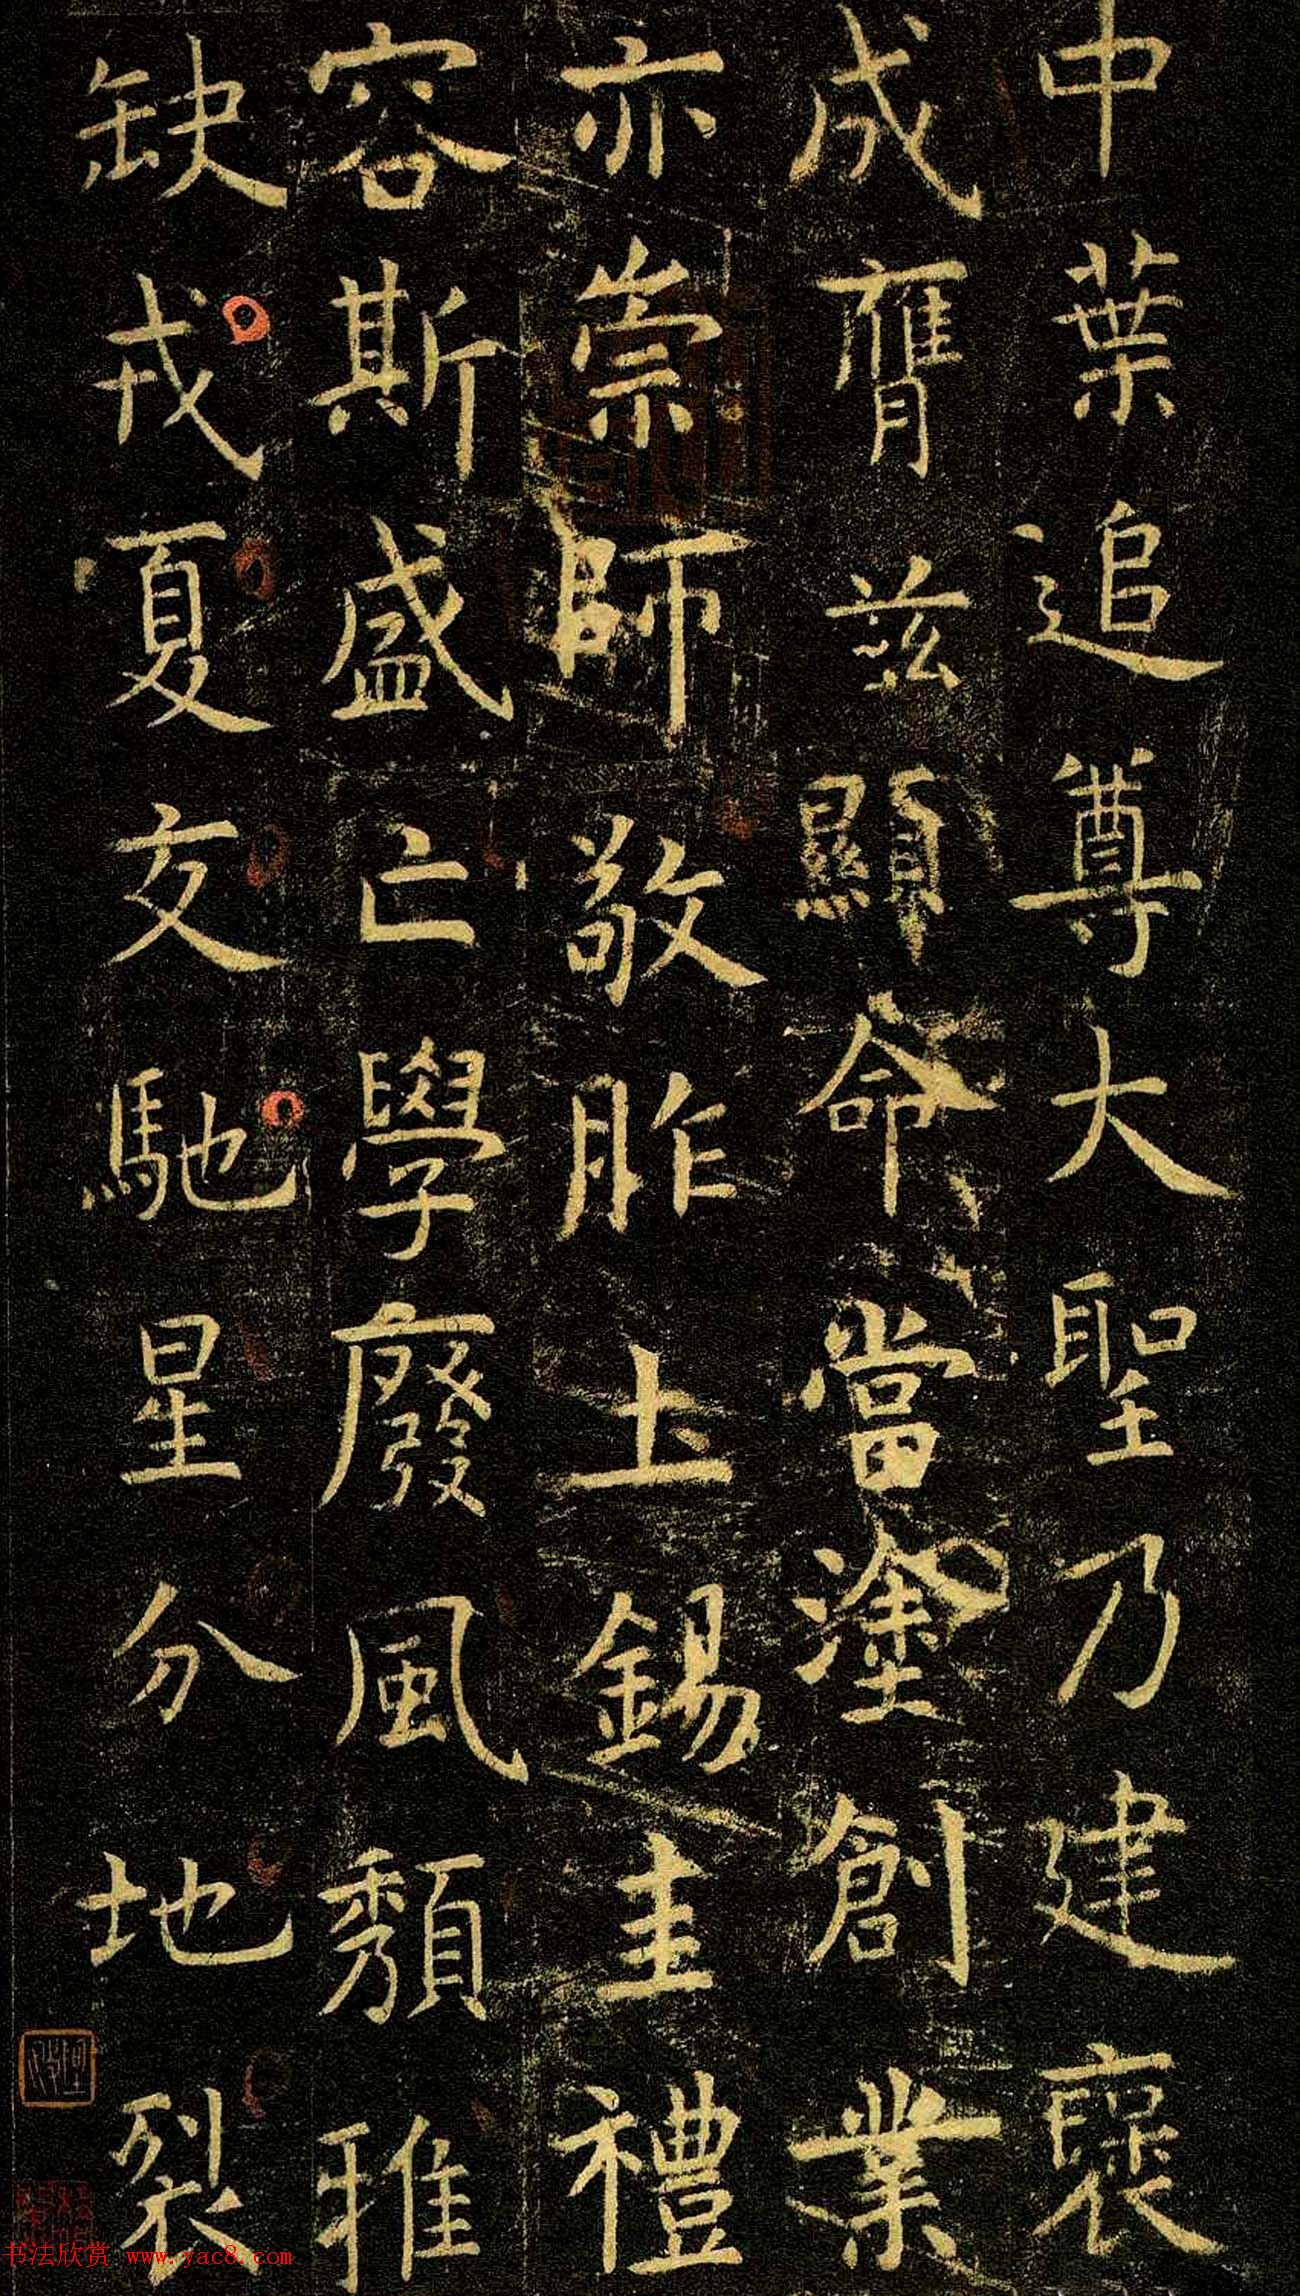 中葉追尊大聖乃建褒
成膺茲顯命當塗創業
亦崇師敬胙土錫圭禮
容斯盛亡學廢風頹雅
缺戎夏交馳星分地裂
书法欣赏 www.yac8.com